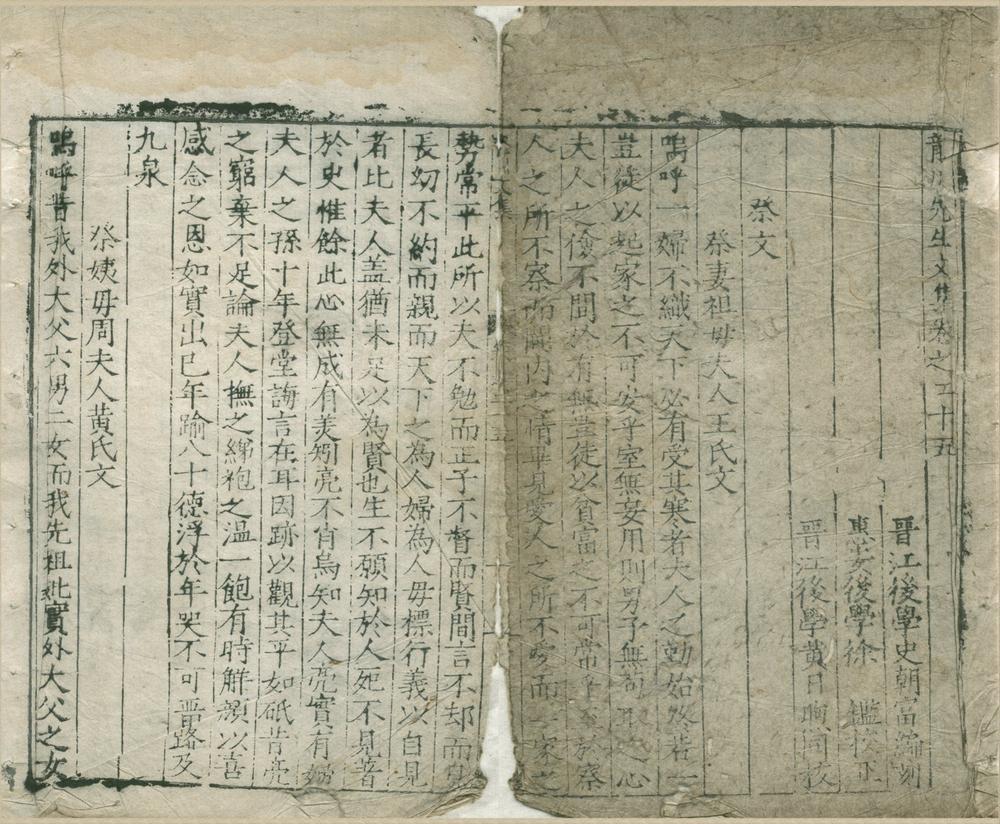 先生文集卷之五十五
晉江後學史朝富編刻
惠安後學徐 鑑校正
晉江後學黃日晌同校
祭文
祭妻祖母夫人王氏文
嗚呼一婦不織天下必有受其寒者夫人之勤始終若一
豈徒以起家之不可安乎室無妄用則男子無苟取之心
夫人之儉不間於有無豈徒以貧富之不可常乎至於察
人之所不察而閫內之情平見愛人之所不愛而一家之
勢常平此所以夫不勉而正子不督而賢間言不却而
長幼不約而親而天下之為人婦為人毋標行義以自見
者比夫人盖猶未足以為賢也生不願知於人死不見著
於史惟餘此心無成有羙矧亮不肖烏知夫人亮實有婦
夫人之孫十年登堂誨言在耳因跡以觀其平如砥昔亮
之窮棄不足論夫人撫之綈袍之溫一飽有時解顔以喜
感念之恩如實出巳年踰八十德浮於年哭不可留路及
九泉
祭姨毋周夫人黃氏文
嗚呼昔我外大父六男二女而我先祖妣實外大父之女